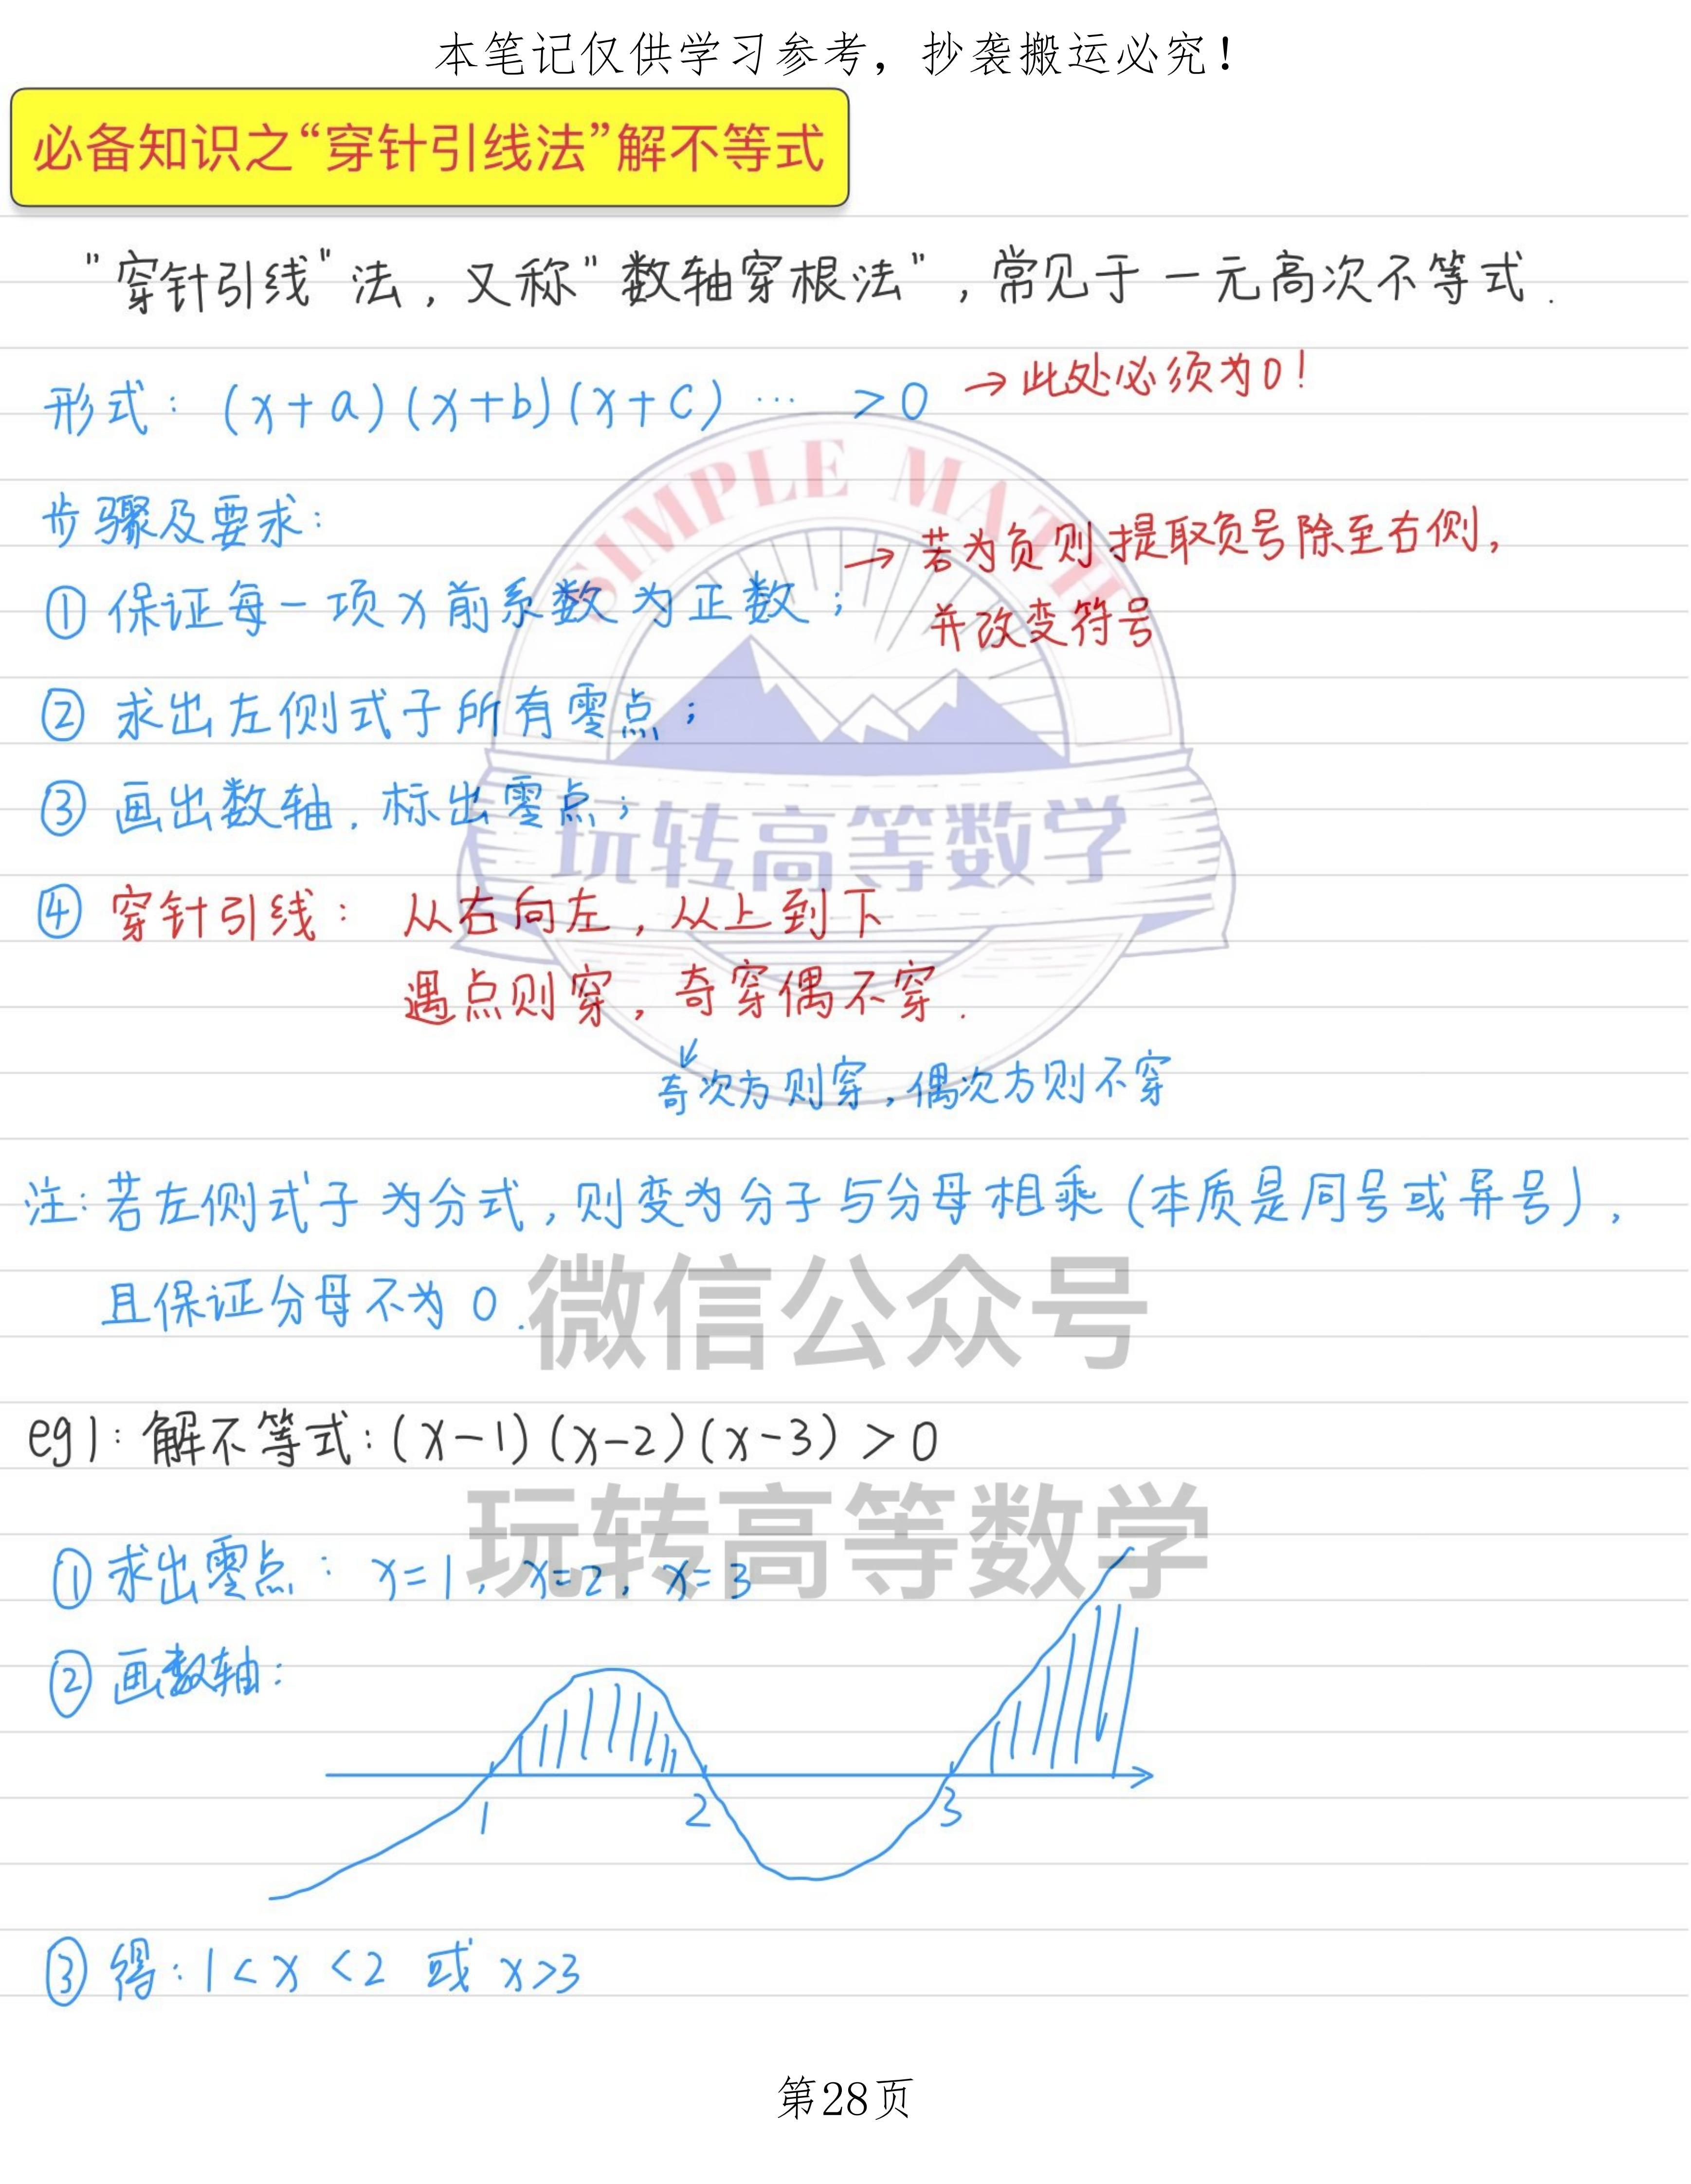 本笔记仅供学习参考，抄袭搬运必究！
必备知识之“穿针引线法”解不等式
"穿针引线"法，又称"数轴穿根法"，常见于一元高次不等式．
形式：(x+a)(x+b)(x+c)⋯ >0 →此处必须为0！
步骤及要求：
①保证每一项x前系数为正数；→若为负则提取负号除至右侧，
并改变符号
②求出左侧式子所有零点；
③画出数轴．标出零点；
④穿针引线：从右向左，从上到下
遇点则穿，奇穿偶不穿．
↙
奇次方则穿，偶次方则不穿
注：若左侧式子为分式，则变为分子与分母相乘(本质是同号或异号)，
且保证分母不为0．
eg1：解不等式：(x-1)(x-2)(x-3)>0
①求出零点：x=1，x=2，x=3
②画数轴：
1 2 3
③得：1<x<2 或 x>3
SIMPLE MATH
玩转高等数学
微信公众号
玩转高等数学
第28页